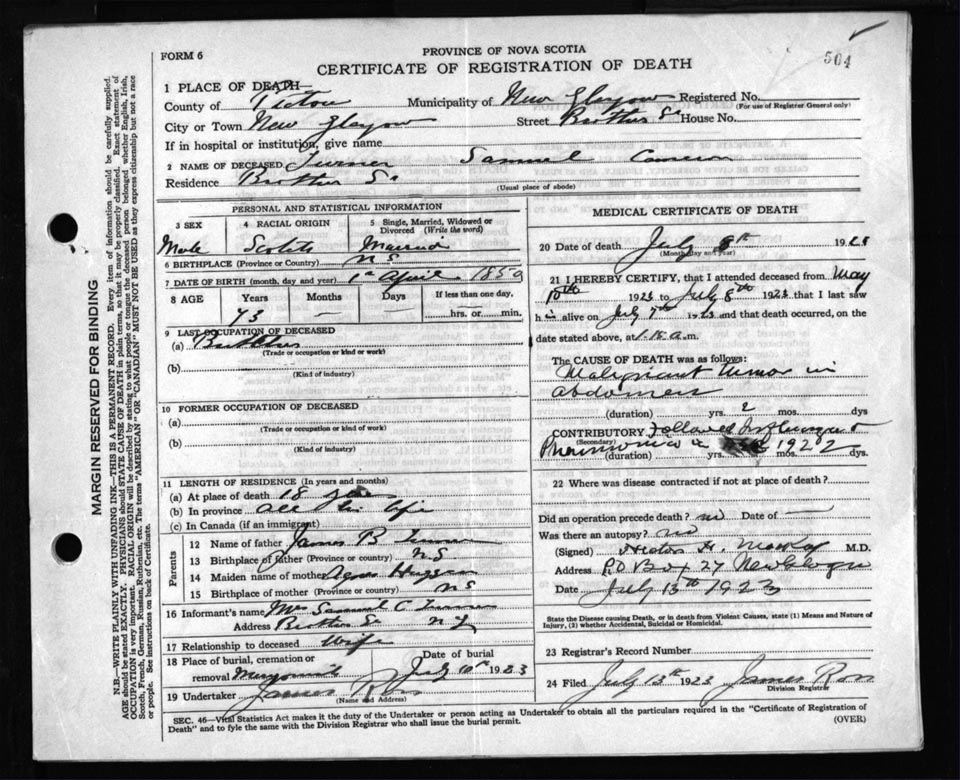 FORM 6
PROVINCE OF NOVA SCOTIA
CERTIFICATE OF REGISTRATION OF DEATH
504
1 PLACE OF DEATH—
County of Pictou Municipality of New Glasgow Registered No.
(For use of Registrar General only)
City or Town New Glasgow Street Brothers St House No.
If in hospital or institution, give name
2 NAME OF DECEASED Turner Samuel Cameron
Residence Brothers St
(Usual place of abode)
PERSONAL AND STATISTICAL INFORMATION
3 SEX 4 RACIAL ORIGIN 5 Single, Married, Widowed or Divorced (Write the word)
Male Scotch Married
6 BIRTHPLACE (Province or Country) N S
7 DATE OF BIRTH (month, day and year) 1st April 1850
8 AGE Years Months Days If less than one day.
73 — — hrs. or min.
9 LAST OCCUPATION OF DECEASED
(a)
(Trade or occupation or kind or work)
(b)
(Kind of industry)
10 FORMER OCCUPATION OF DECEASED
(a)
(Trade or occupation or kind of work)
(b)
(Kind of industry)
11 LENGTH OF RESIDENCE (In years and months)
(a) At place of death 18
(b) In province all his life
(c) In Canada (if an immigrant)
Parents
12 Name of father James B Turner
13 Birthplace of father (Province or country) N S
14 Maiden name of mother Agnes
15 Birthplace of mother (Province or country) N S
16 Informant's name Mrs Samuel C Turner
Address Brothers St N G
17 Relationship to deceased Wife
18 Place of burial, cremation or removal Date of burial
July 10th 1923
19 Undertaker James Ross
(Name and Address)
MEDICAL CERTIFICATE OF DEATH
20 Date of death July 8th 192
(Month, day and year)
21 I HEREBY CERTIFY, that I attended deceased from May
10th 1923 to July 8th 1923 that I last saw
h im alive on July 7th 1923 and that death occurred, on the
date stated above, at 1-15 a.m.
The CAUSE OF DEATH was as follows:
Malignant tumor in
abdomen
(duration) yrs. 2 mos. dys
CONTRIBUTORY Followed Influenza &
(Secondary)
Pneumonia in 1922
(duration) yrs. mos. dys.
22 Where was disease contracted if not at place of death?
Did an operation precede death? no Date of —
Was there an autopsy? no
(Signed) M.D.
Address P.O Box 27 New Glasgow
Date July 13th 1923
State the Disease causing Death, or in death from Violent Causes, state (1) Means and Nature of
Injury, (2) whether Accidental, Suicidal or Homicidal.
23 Registrar's Record Number
24 Filed July 13th 1923 James Ross
Division Registrar
SEC. 46—Vital Statistics Act makes it the duty of the Undertaker or person acting as Undertaker to obtain all the particulars required in the "Certificate of Registration of
Death" and to fyle the same with the Division Registrar who shall issue the burial permit.
(OVER)
MARGIN RESERVED FOR BINDING
N.B.—WRITE PLAINLY WITH UNFADING INK—THIS IS A PERMANENT RECORD. Every item of information should be carefully supplied.
AGE should be stated EXACTLY. PHYSICIANS should STATE CAUSE OF DEATH in plain terms, so that it may be properly classified. Exact statement of
OCCUPATION is very important. RACIAL ORIGIN will be described by stating to what people or tongue the deceased person belonged whether English, Irish,
Scotch, French, German, Russian, Ruthenian, etc. The terms "AMERICAN" OR "CANADIAN" MUST NOT BE USED as they express citizenship but not a race
or people. See instructions on back of Certificate.